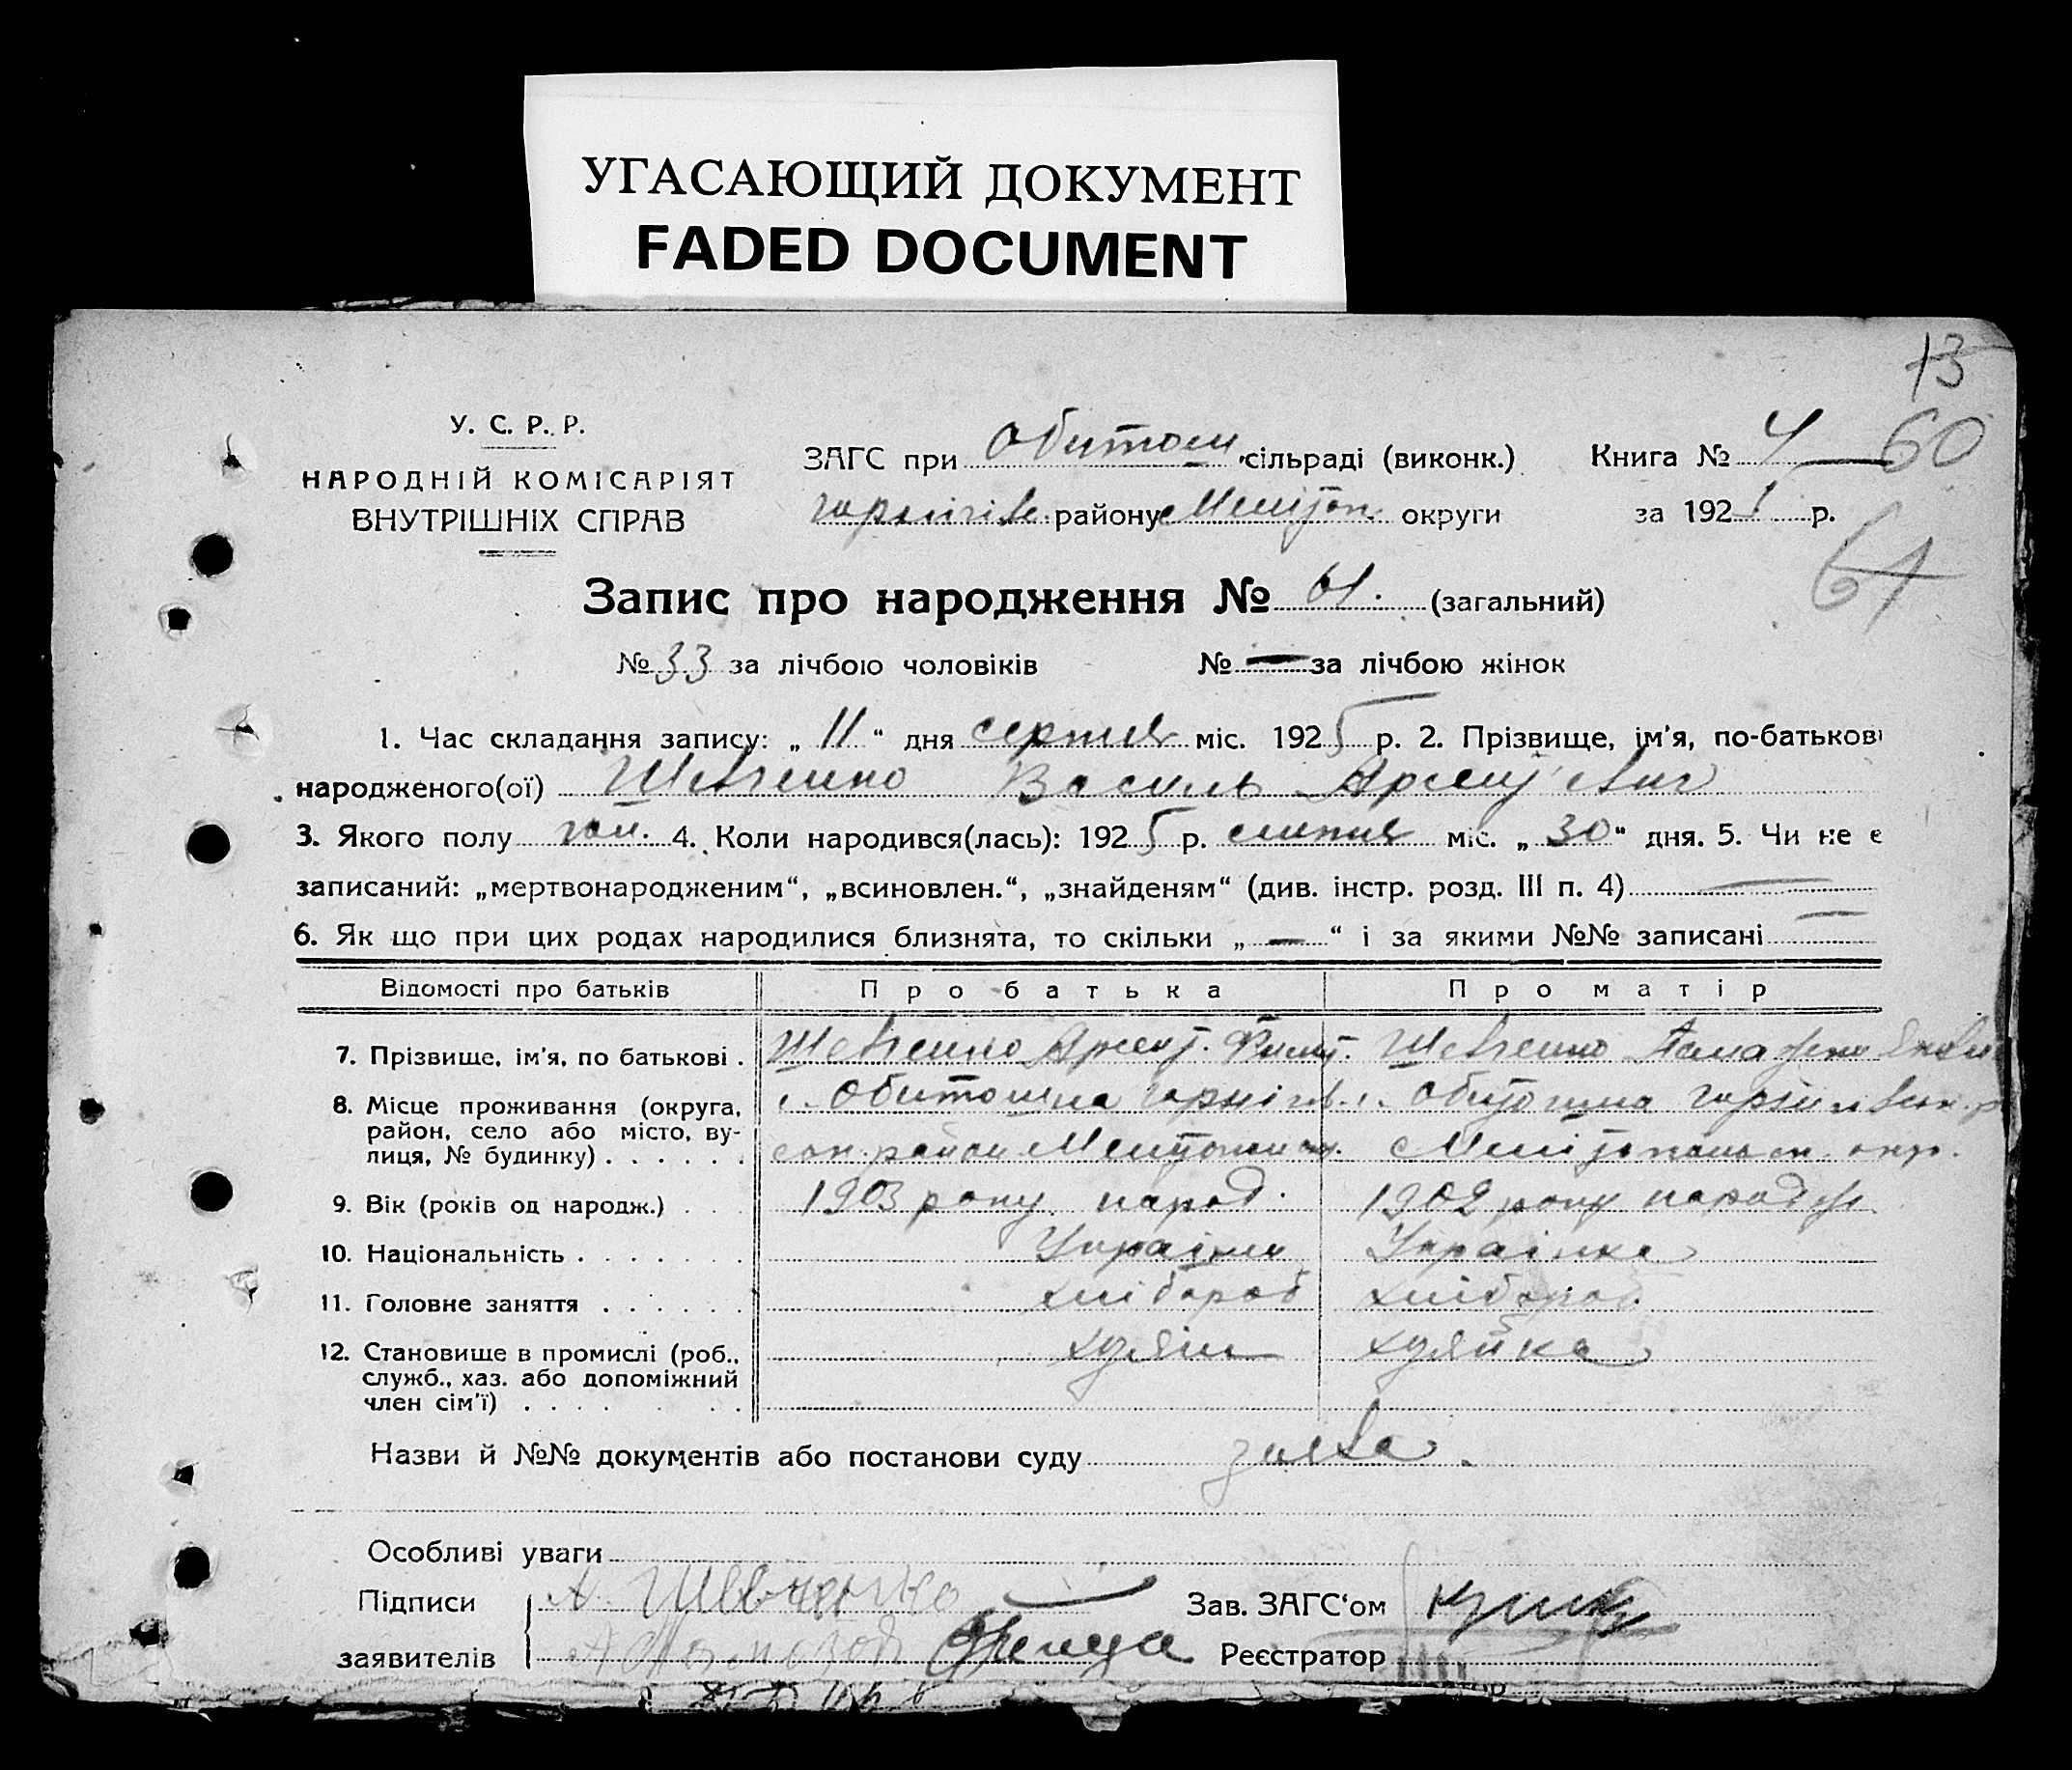 УГАСАЮЩИЙ ДОКУМЕНТ
FADED DOCUMENT
73
У. С. Р. Р.
НАРОДНІЙ КОМІСАРІЯТ
ВНУТРІШНІХ СПРАВ
ЗАГС при Обиточн. сільраді (виконк.)
району Мелітоп. округи
Книга № 4 60
за 192 р.
61
Запис про народження № 61. (загальний)
№ 33 за лічбою чоловіків № — за лічбою жінок
1. Час складання запису: „ 11 “ дня серпня міс. 1925 р. 2. Прізвище, ім'я, по-батькові
народженого(ої) Шевченко Василь Арсентьевич
3. Якого полу чол. 4. Коли народився(лась): 1925 р. липня міс. „ 30 “ дня. 5. Чи не є
записаний: „мертвонародженим“, „всиновлен.“, „знайденям“ (див. інстр. розд. III п. 4) —
6. Як що при цих родах народилися близнята, то скільки „ — “ і за якими №№ записані —
Відомості про батьків Про батька Про матір
7. Прізвище, ім'я, по батькові . Шевченко Арсент. Шевченко
8. Місце проживання (округа, район, село або місто, вулиця, № будинку) . . . . . . с. Обиточна район с. Обиточна
9. Вік (років од народж.) . . . 1903 року народ. 1902 року народж
10. Національність . . . . . . . Українець Українка
11. Головне заняття . . . . . . хлібороб хлібороб
12. Становище в промислі (роб., служб., хаз. або допоміжний член сім'ї) . . . . . . . хузяін хузяйка
Назви й №№ документів або постанови суду заява.
Особливі уваги
Підписи А. Шевченко Зав. ЗАГС'ом
заявителів Реєстратор